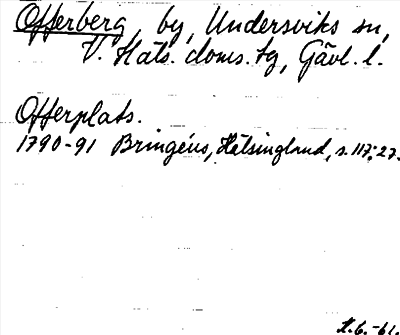 Offerberg, by, Undersviks sn,
V. Häls. doms. tg, Gävl. l.
Offerplats.
1790-91 Bringéus, Hälsingland, s. 117; 27.
-61.